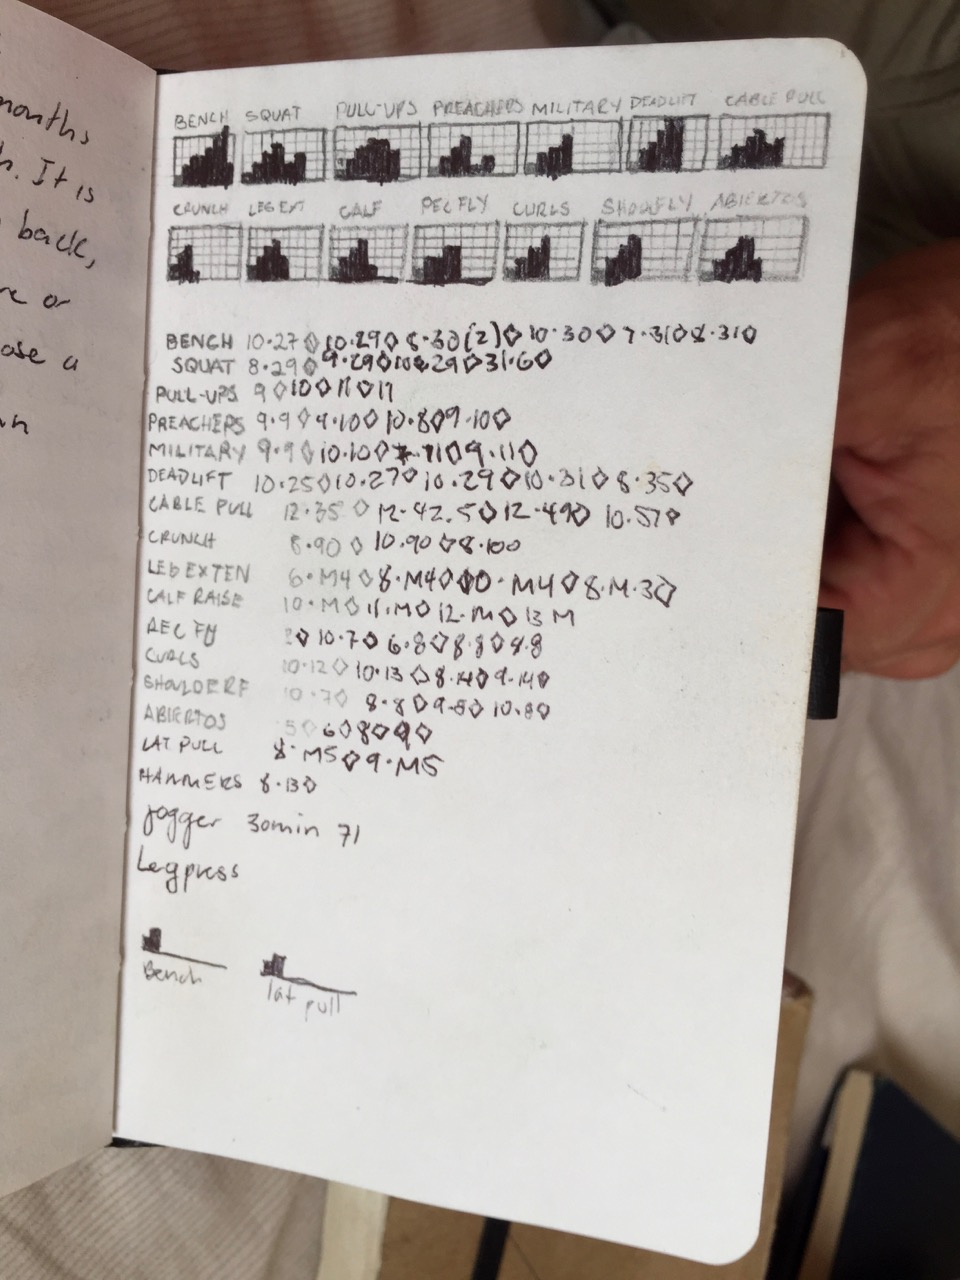 months
. It is
back,
or
ose a
BENCH SQUAT PULL-UPS PREACHERS MILITARY DEADLIFT CABLE PULL
CRUNCH LEG EXT CALF PEC FLY CURLS SHOULFLY ABIERTOS
BENCH 10·27◊10·29◊8·30(2)◊10·30◊7·31◊8·31◊
SQUAT 8·29◊9·29◊10·29◊31·6◊
PULL-UPS 9◊10◊11◊17
PREACHERS 9·9◊9·10◊10·8◊9·10◊
MILITARY 9·9◊10·10◊ 11◊9·11◊
DEADLIFT 10·25◊10·27◊10·29◊10·31◊8·35◊
CABLE PULL 12·35◊12·42.5◊12·49◊10·57◊
CRUNCH 8·90◊10·90◊8·100
LEG EXTEN 6·M4◊8·M4◊10·M4◊8·M·3◊
CALF RAISE 10·M◊11·M◊12·M◊13 M
PEC FLY ◊10·7◊6·8◊8·8◊9·8
CURLS 10·12◊10·13◊8·14◊9·14◊
SHOULDER F 10·7◊8·8◊9·8◊10·8◊
ABIERTOS 5◊6◊8◊9◊
LAT PULL 8·M5◊9·M5
HAMMERS 8·13◊
jogger 30min 71
Legpress
Bench lat pull